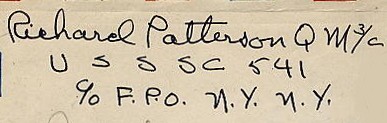 Richard Patterson Q M 3/c
U S S SC 541
c/o F.P.O. N.Y. N.Y.